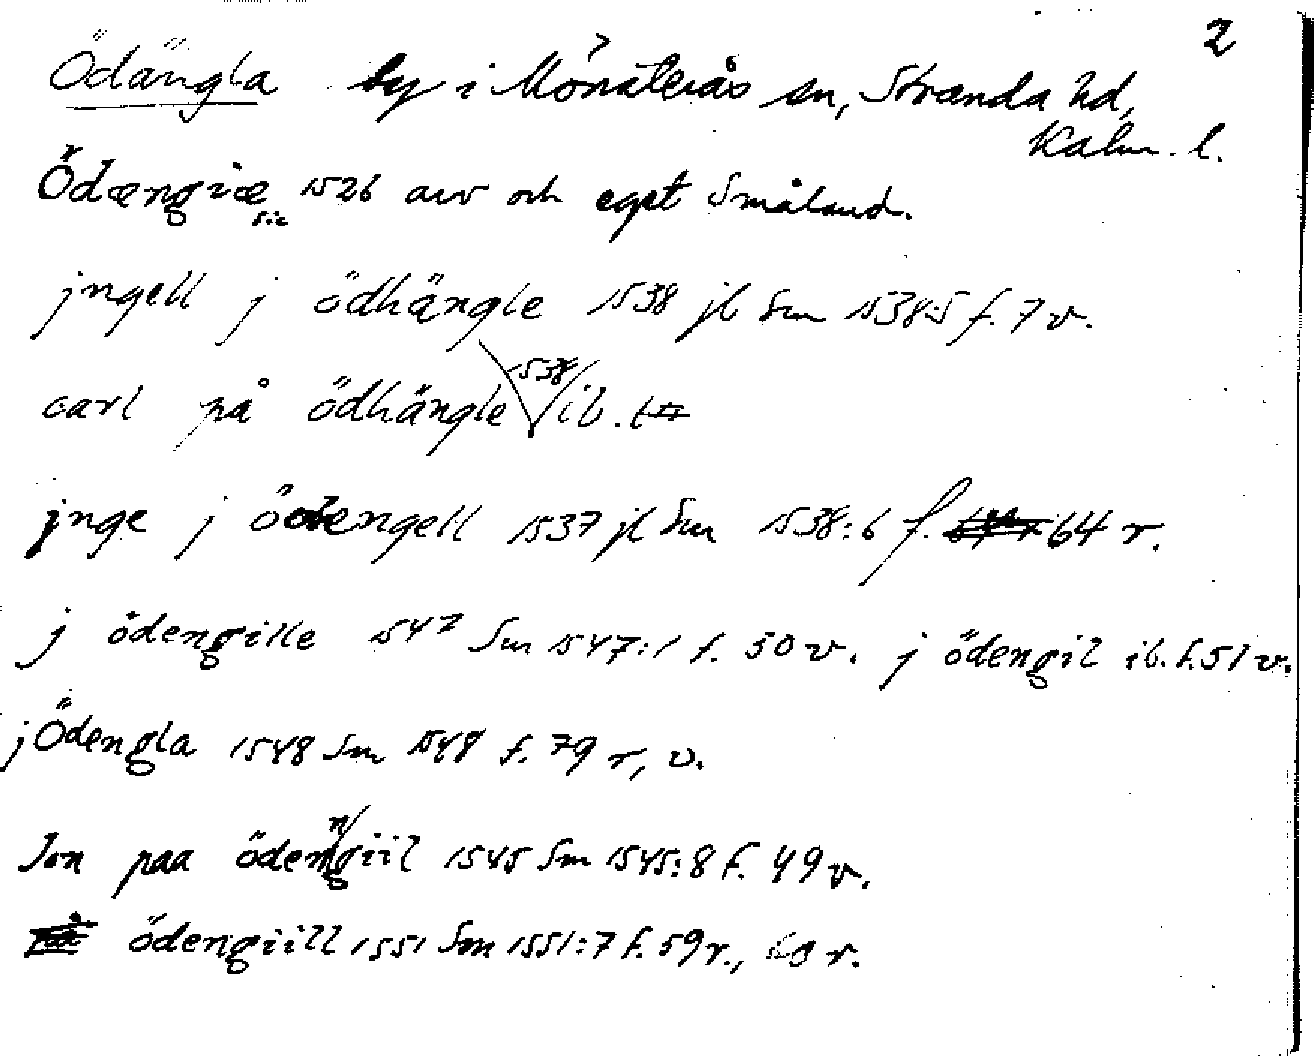 2
Ödängla by i Mönsterås sn, Stranda hd,
Kalm. l.
Ödængiæ 1526 arv och eget Småland.
sic
jngell j ödhängle 1538 jb Sm 1538:5 f. 7 v.
carl på ödhängle 1538 ib.
jnge j ödengell 1537 jb Sm 1538:6 f. 64 r.
j ödengille 1547 Sm 1547:1 f. 50 v. j ödengil ib. f. 51 v.
j Ödengla 1548 Sm 1548 f. 79 r, v.
Jon paa ödengiil 1545 Sm 1545:8 f. 49 v.
ödengiill 1551 Sm 1551:7 f. 59 r., 60 r.